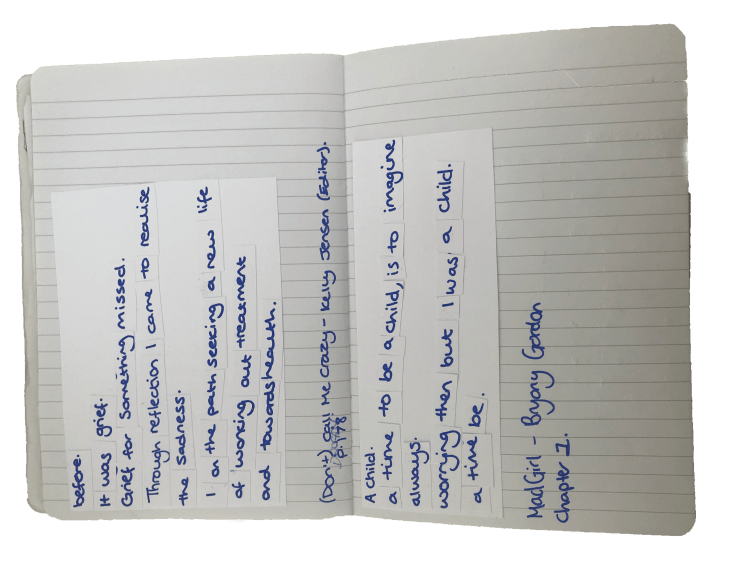 before.
It was grief.
Grief for something missed.
Through reflection I came to realise
the sadness.
I on the path seeking a new life
of working out treatment
and towards health.
(Don't) Call Me Crazy - Kelly Jensen (Editor).
p.178
A child.
a time to be a child, is to imagine
always.
worrying then but I was a child.
a time be.
Mad Girl - Bryony Gordon
Chapter 1.